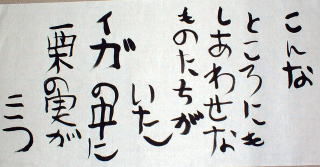 こんな
ところにも
しあわせな
ものたちが
いた
イガの中に
栗の実が
三つ